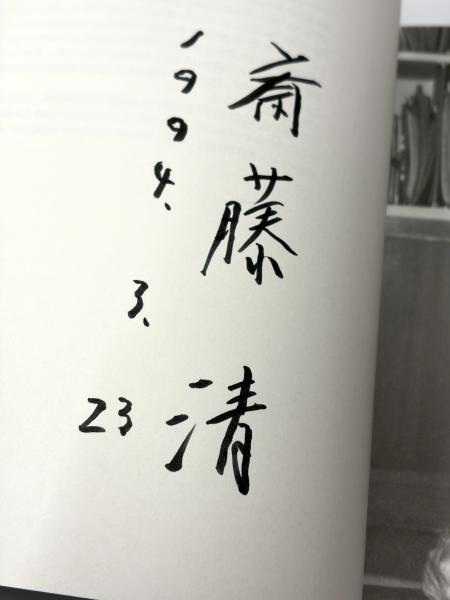 斎藤清
1994.3.23